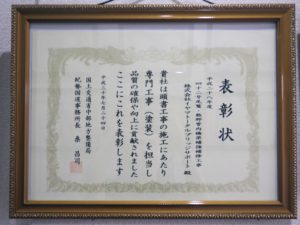 表彰状
平成二十六年度
株式会社イヤマトータルブリッジサポート 殿
貴社は頭書工事の施工にあたり
専門工事(塗装)を担当し
品質の確保や向上に貢献されました
ここにこれを表彰します
平成二十七年七月二十四日
国土交通省中部地方整備局
紀勢国道事務所長